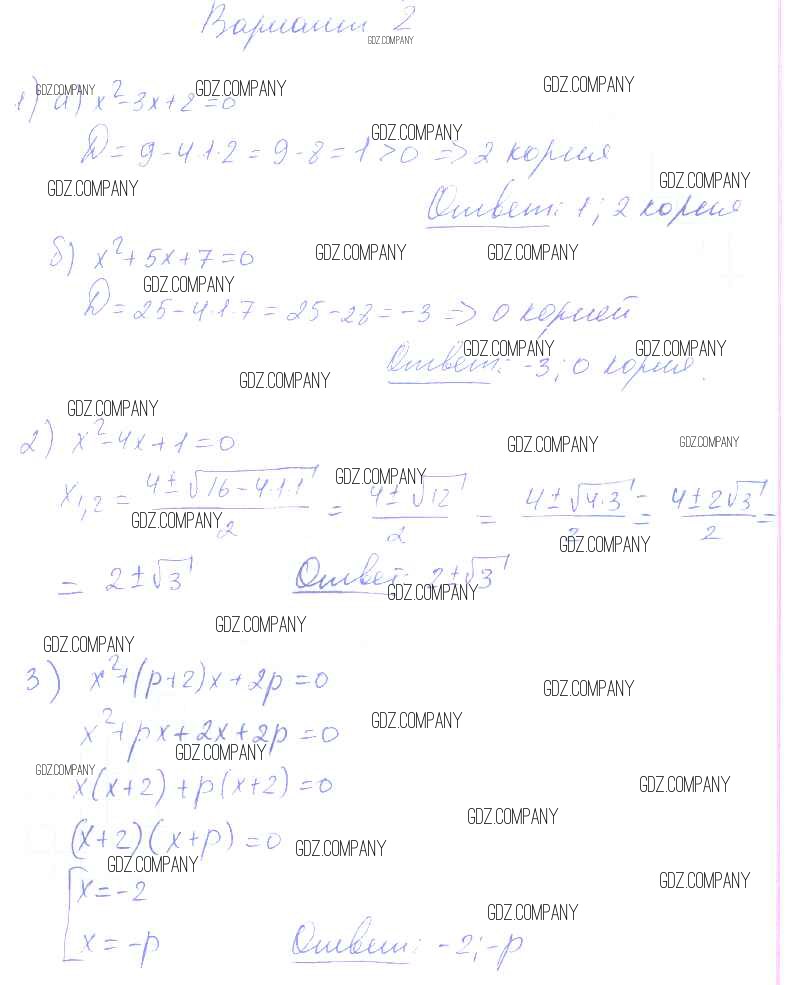 Вариант 2
GDZ.COMPANY
GDZ.COMPANY GDZ.COMPANY GDZ.COMPANY
1) а) x²-3x+2=0
GDZ.COMPANY
D = 9-4·1·2 = 9-8 = 1>0 => 2 корня
GDZ.COMPANY GDZ.COMPANY
Ответ: 1; 2 корня
б) x²+5x+7=0 GDZ.COMPANY GDZ.COMPANY
GDZ.COMPANY
D = 25-4·1·7 = 25-28 = -3 => 0 корней
GDZ.COMPANY GDZ.COMPANY
Ответ: -3; 0 корня.
GDZ.COMPANY
GDZ.COMPANY
2) x²-4x+1=0 GDZ.COMPANY GDZ.COMPANY
x1,2 = (4±√(16-4·1·1))/2 = (4±√12)/2 = (4±√(4·3))/2 = (4±2√3)/2 =
GDZ.COMPANY
GDZ.COMPANY
GDZ.COMPANY
= 2±√3 Ответ: 2±√3
GDZ.COMPANY
GDZ.COMPANY
GDZ.COMPANY
3) x²+(p+2)x+2p=0
GDZ.COMPANY
GDZ.COMPANY
x²+px+2x+2p=0
GDZ.COMPANY
GDZ.COMPANY
x(x+2)+p(x+2)=0 GDZ.COMPANY
GDZ.COMPANY
(x+2)(x+p)=0 GDZ.COMPANY
GDZ.COMPANY
x=-2 GDZ.COMPANY
GDZ.COMPANY
x=-p Ответ: -2; -p